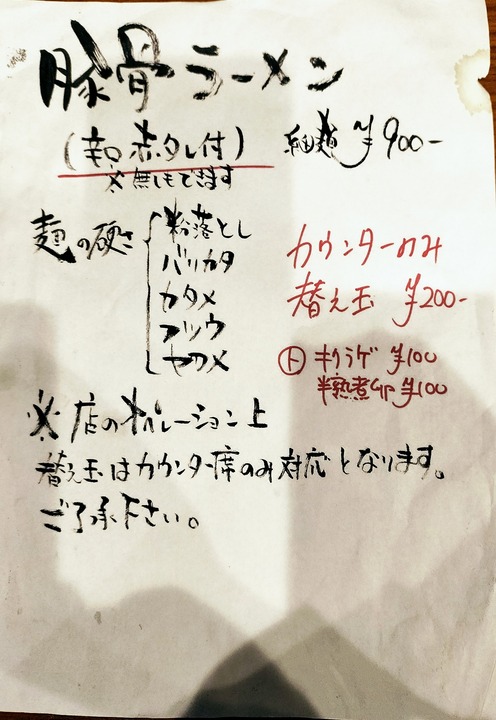 豚骨ラーメン
(辛口赤タレ付) 細麺 ¥900-
※無しもできます
麺の硬さ
粉落とし
バリカタ
カタメ
フツウ
ヤワメ
カウンターのみ
替え玉 ¥200-
ト キクラゲ ¥100
半熟煮GP ¥100
※店のオペレーション上
替え玉はカウンター席のみ対応となります。
ご了承下さい。